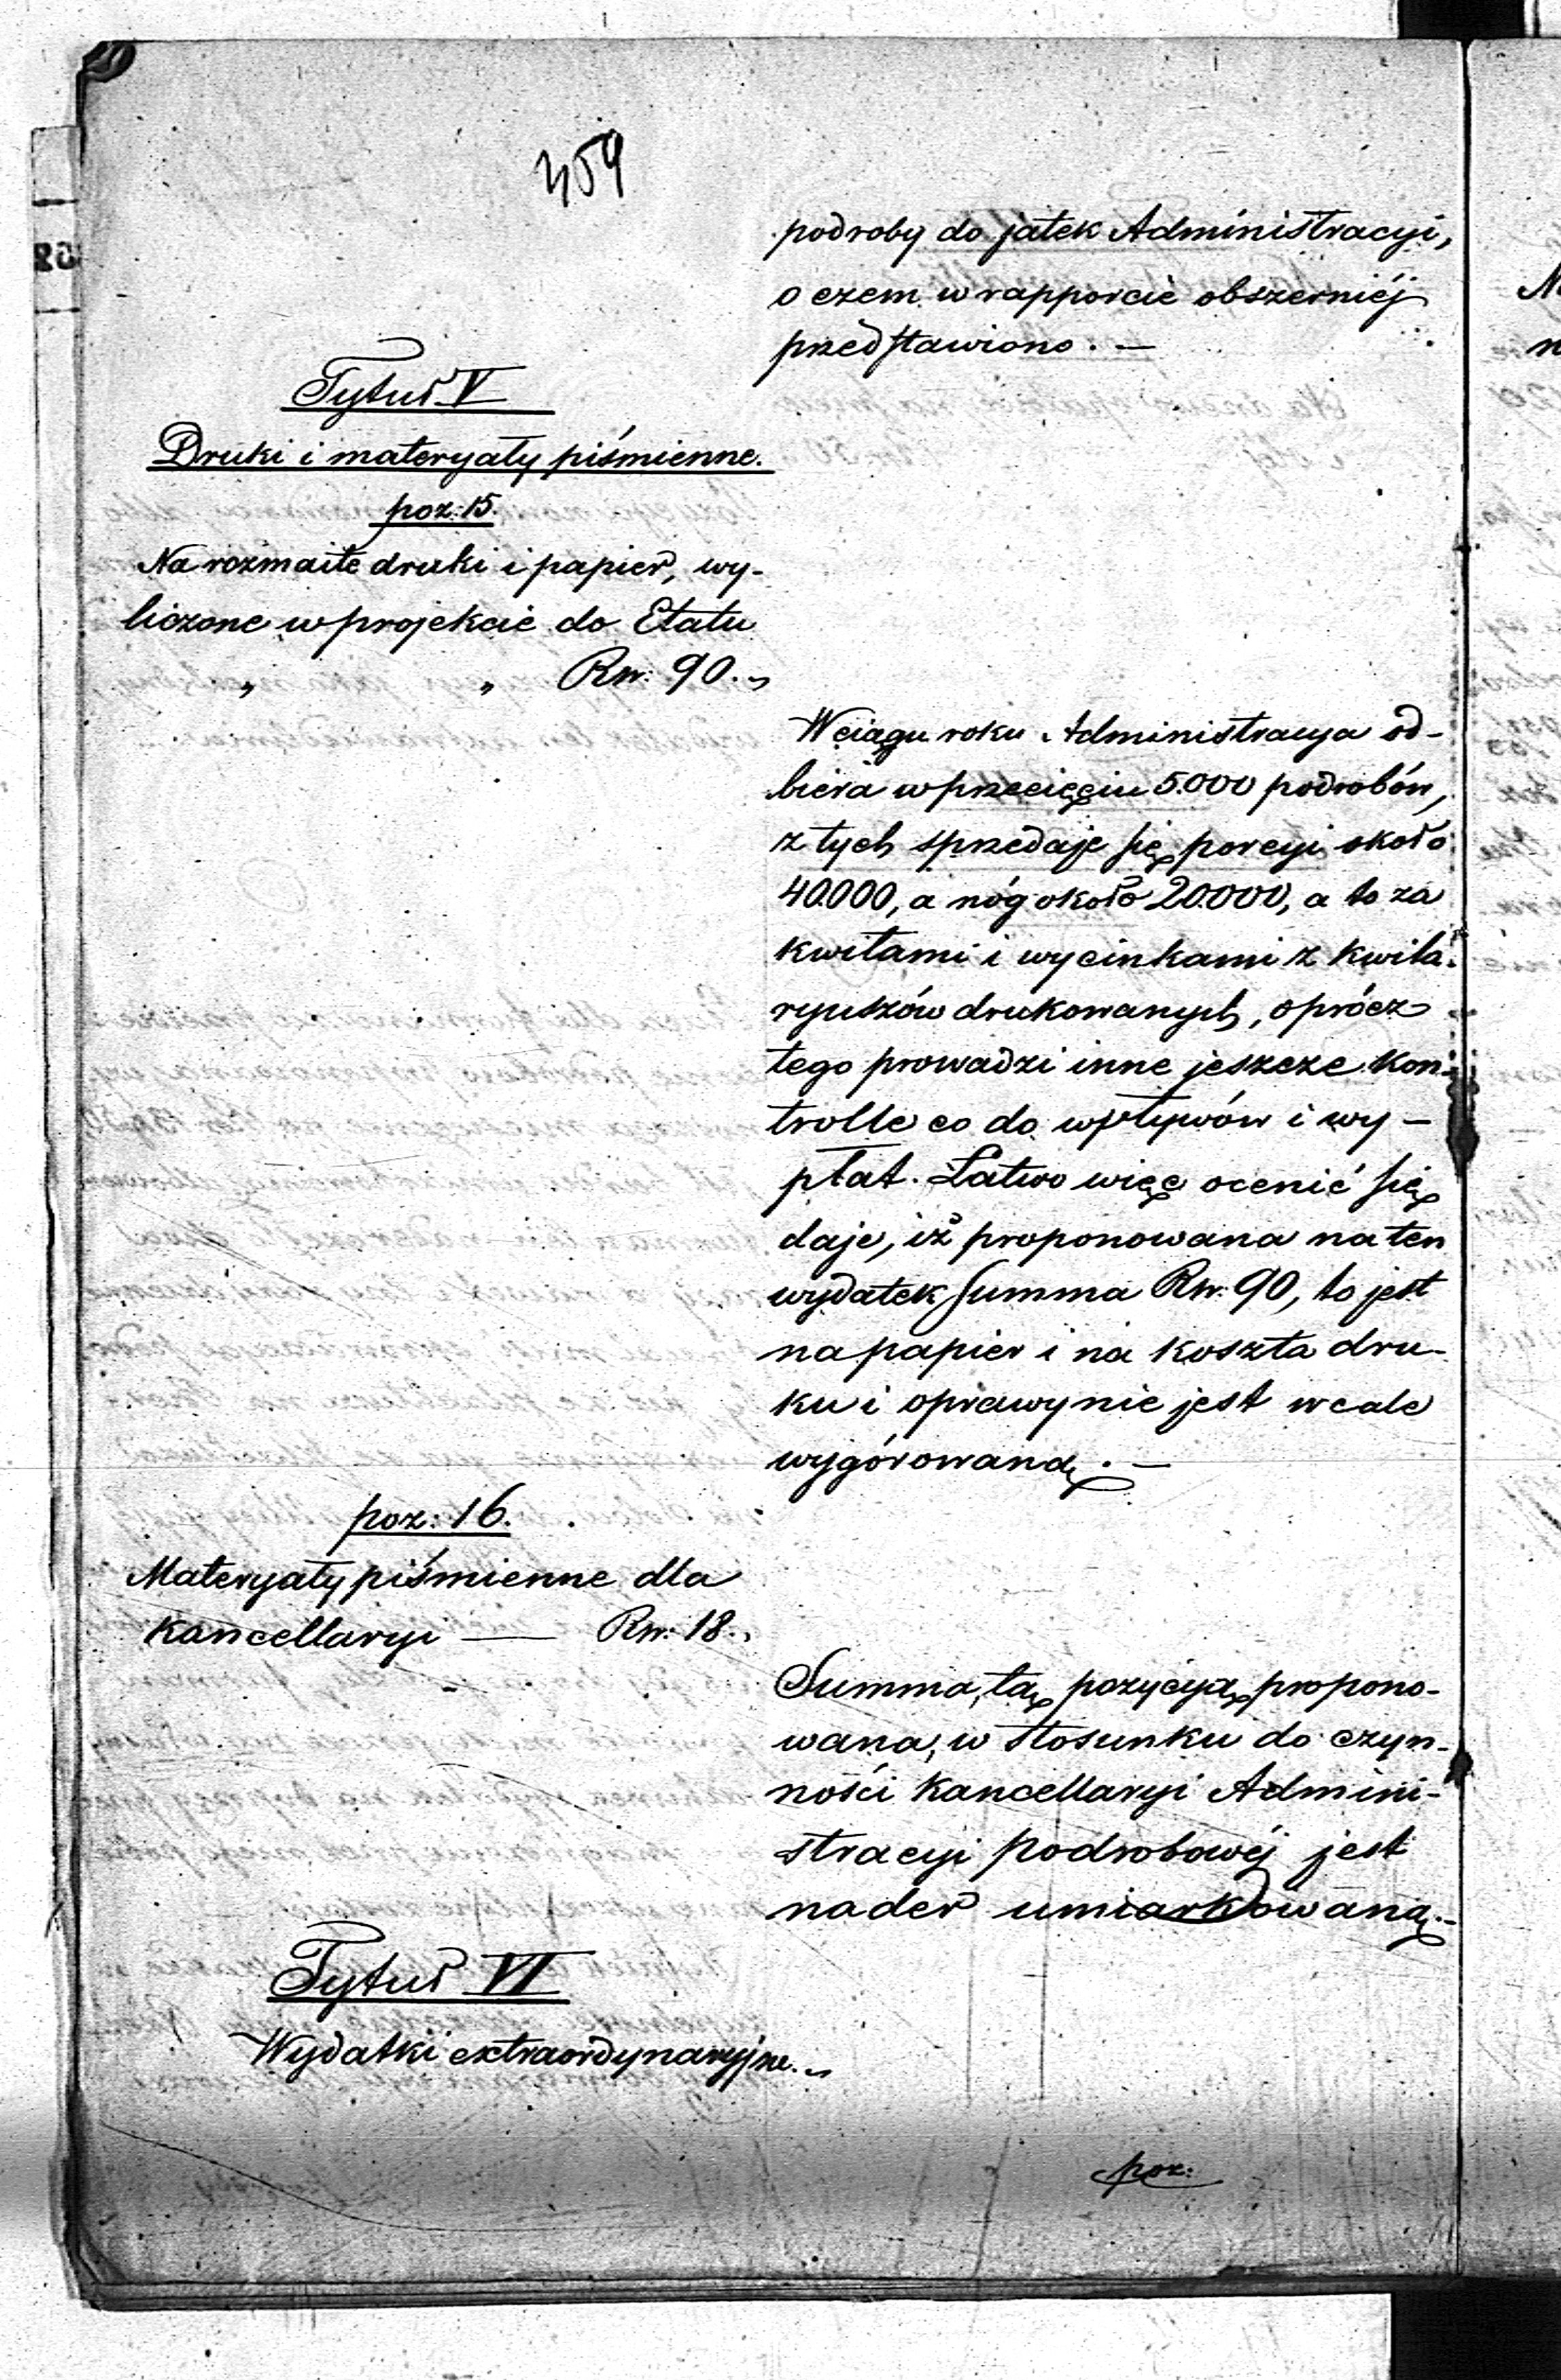 359
podroby do jatek Administracyi,
o czem w rapporcie obszerniéj
przedstawiono. —
Tytuł V
Druki i materyały piśmienne.
poz: 15.
Na rozmaite druki i papier, wy-
liczone w projekcie do Etatu
" " Rsr: 90.
W ciągu roku Administracya od-
biera w przecięciu 5.000 podrobów,
z tych sprzedaje się porcyi około
40.000, a nóg około 20.000, a to za
kwitami i wycinkami z kwita-
ryuszów drukowanych, oprócz
tego prowadzi inne jeszcze kon-
trolle co do wpływów i wy-
płat. Łatwo więc ocenić się
daje, iż proponowana na ten
wydatek Summa Rsr. 90, to jest
na papier i na koszta dru-
ku i oprawy nie jest wcale
wygórowaną. —
poz: 16.
Materyały piśmienne dla
Kancellaryi — Rsr: 18.
Summa, tą pozycyą propono-
wana, w stosunku do czyn-
ności Kancellaryi Admini-
stracyi podrobowéj jest
nader umiarkowaną. —
Tytuł VI
Wydatki extraordynaryjne.
poz: